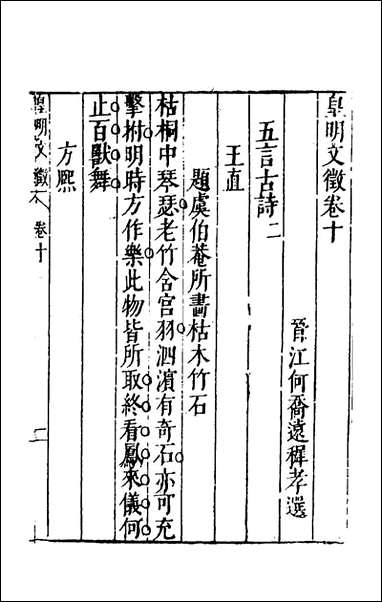 皇明文徵卷十
晉江何喬遠穉孝選
五言古詩二
王直
題虞伯菴所畫枯木竹石
枯桐中琴瑟老竹含宫羽泗濵有奇石亦可充
擊拊明時方作樂此物皆所取終看鳳來儀何
止百獸舞
方熈
皇明文徵 卷十 一